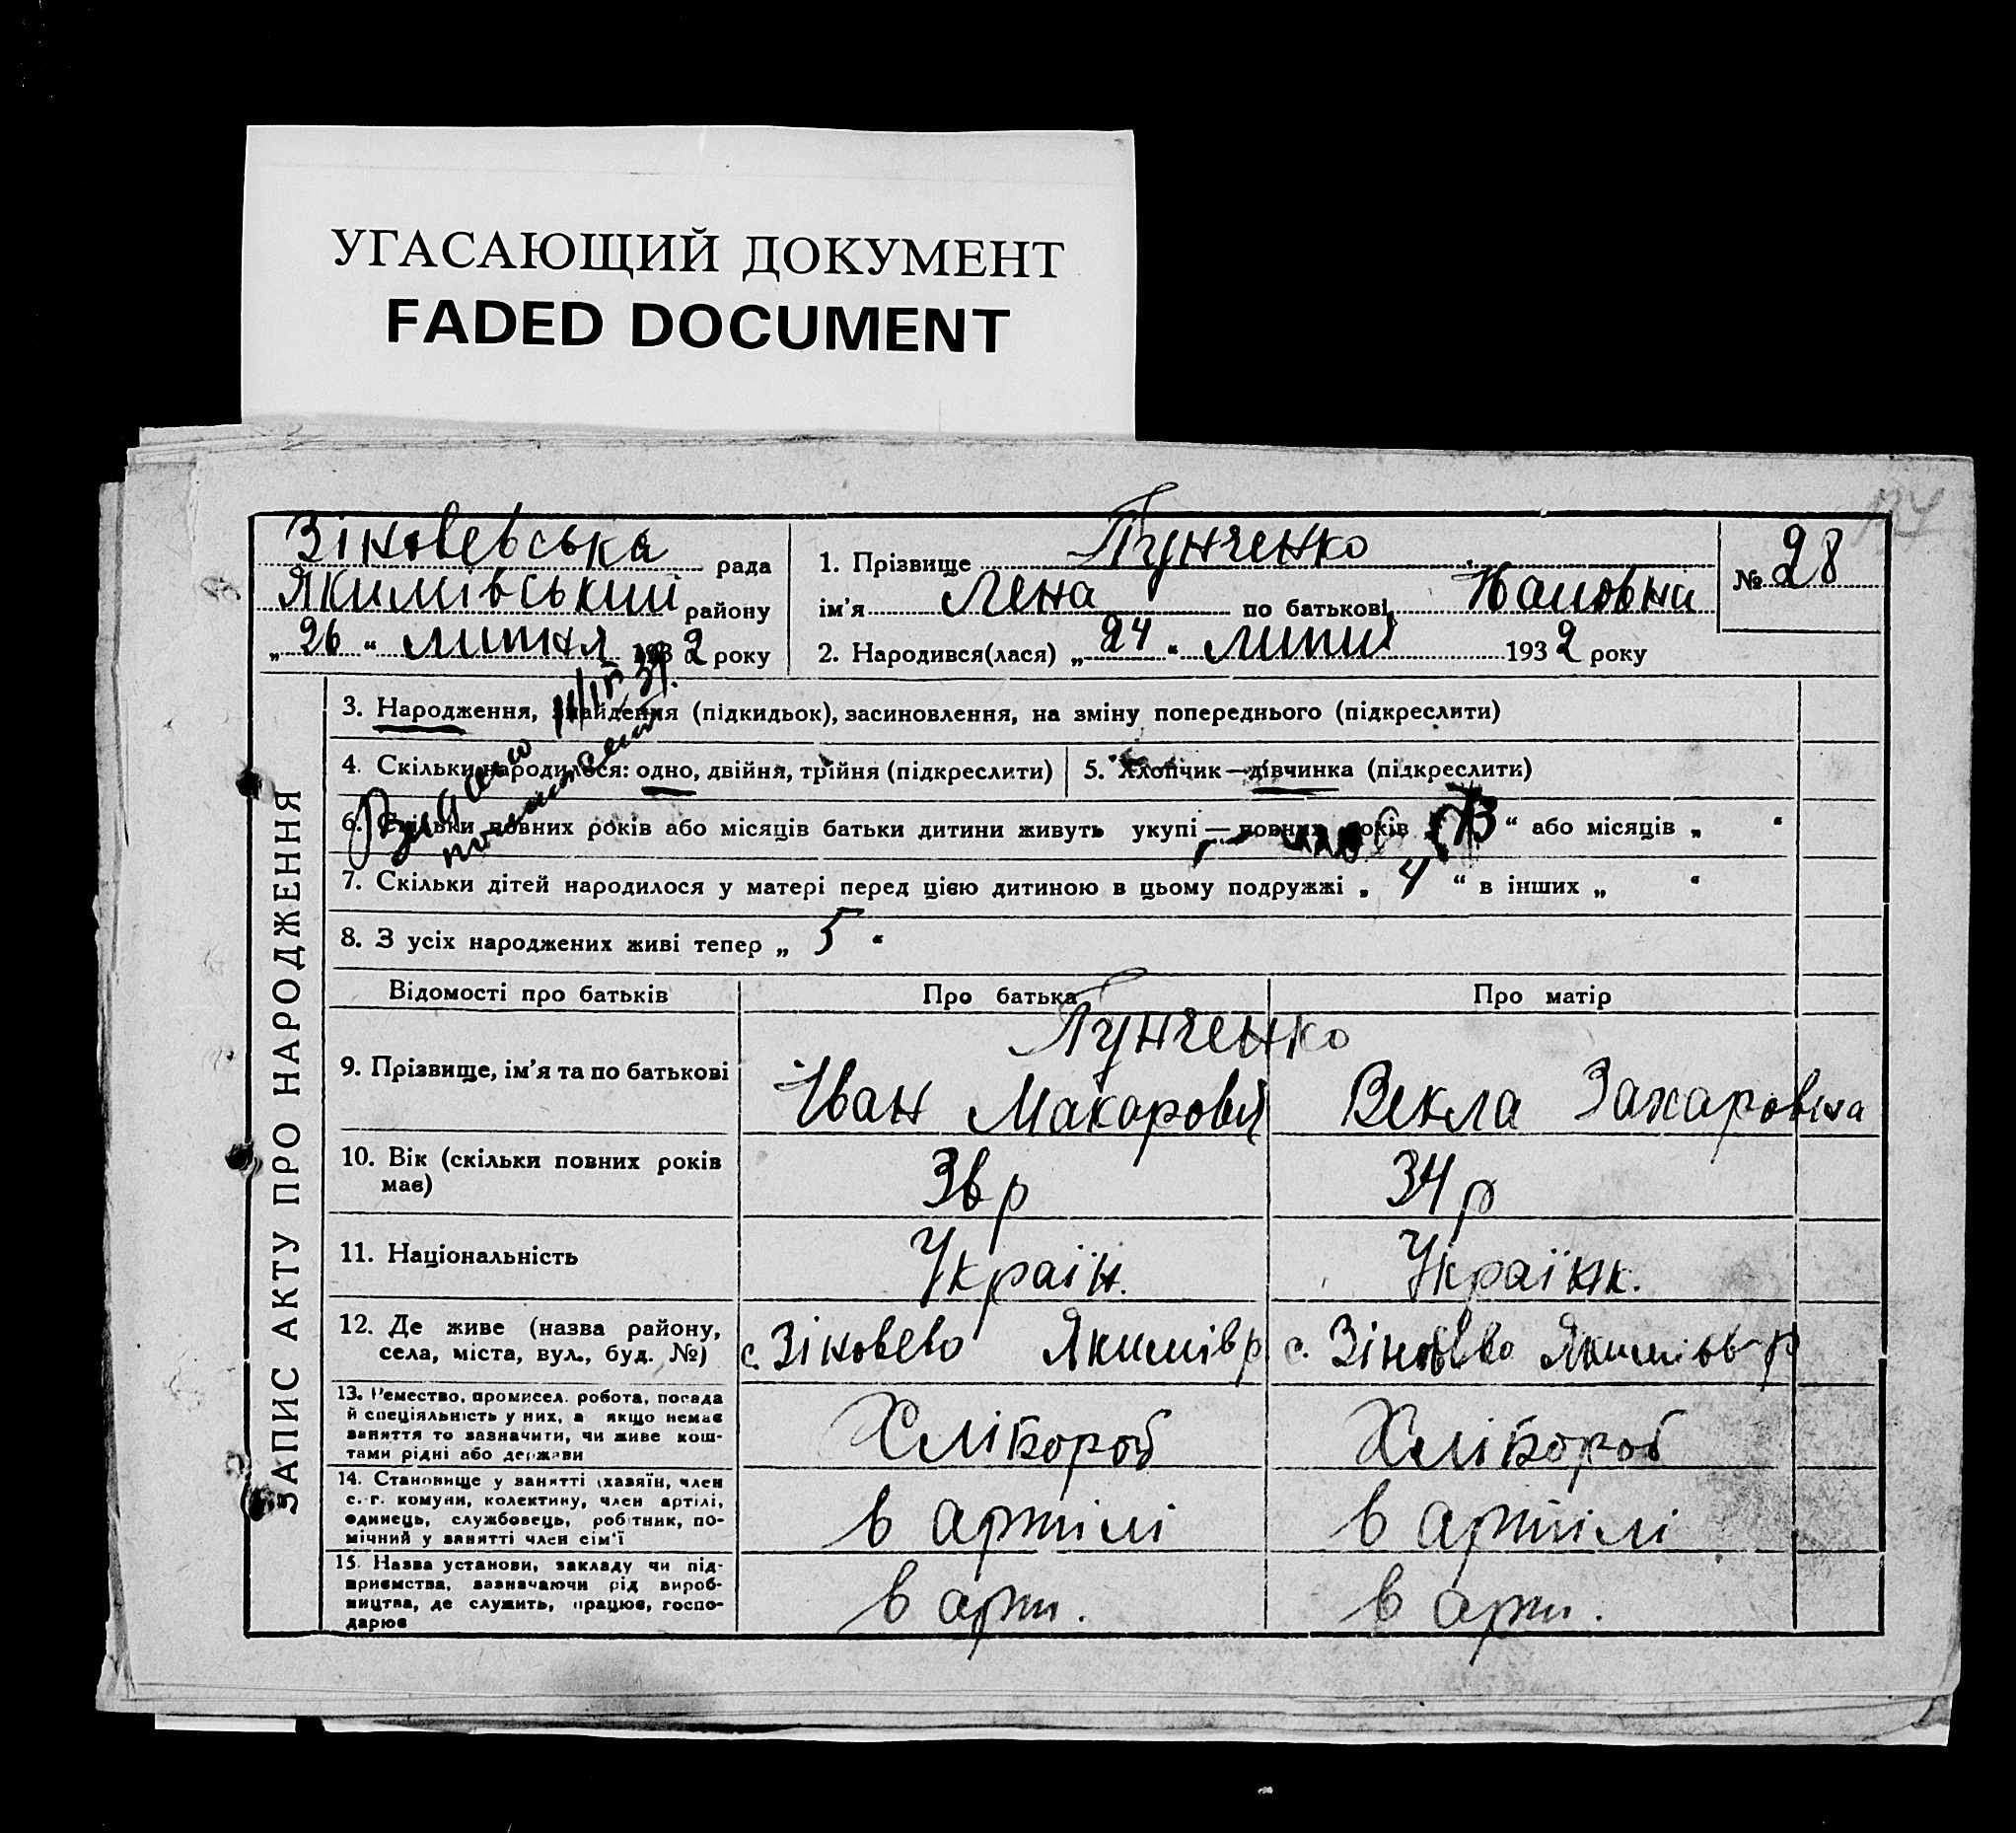 УГАСАЮЩИЙ ДОКУМЕНТ
FADED DOCUMENT
Зіновевська рада
Якимівський району
„ 26 “ липня 1932 року
1. Прізвище Пунченко
ім'я Лена по батькові
2. Народився(лася) „ 24 “ липня 1932 року
№ 28
ЗАПИС АКТУ ПРО НАРОДЖЕННЯ
3. Народження, знайдення (підкидьок), засиновлення, на зміну попереднього (підкреслити)
4. Скільки народилося: одно, двійня, трійня (підкреслити)
5. Хлопчик—дівчинка (підкреслити)
6. Скільки повних років або місяців батьки дитини живуть укупі — повних років “ або місяців „ “
7. Скільки дітей народилося у матері перед цією дитиною в цьому подружжі „ 4 “ в інших „ “
8. З усіх народжених живі тепер „ 5 “
Відомості про батьків Про батька Про матір
Пунченко
9. Прізвище, ім'я та по батькові Іван Макарович Векла Захаровна
10. Вік (скільки повних років має) 36 р 34 р
11. Національність Україн. Українк.
12. Де живе (назва району, села, міста, вул., буд. №) с. Зіновево Якимів р с. Зіновево Якимівр
13. Ремество, промисел. робота, посада й спеціяльність у них, а якщо немає заняття то зазначити, чи живе коштами рідні або держави Хлібороб Хлібороб
14. Становище у занятті (хазяїн, член с.-г. комуни, колективу, член артілі, одинець, службовець, робітник, помічний у занятті член сім'ї в артілі в артілі
15. Назва установи, закладу чи підприємства, зазначаючи рід виробництва, де служить, працює, господарює в арт. в арт.